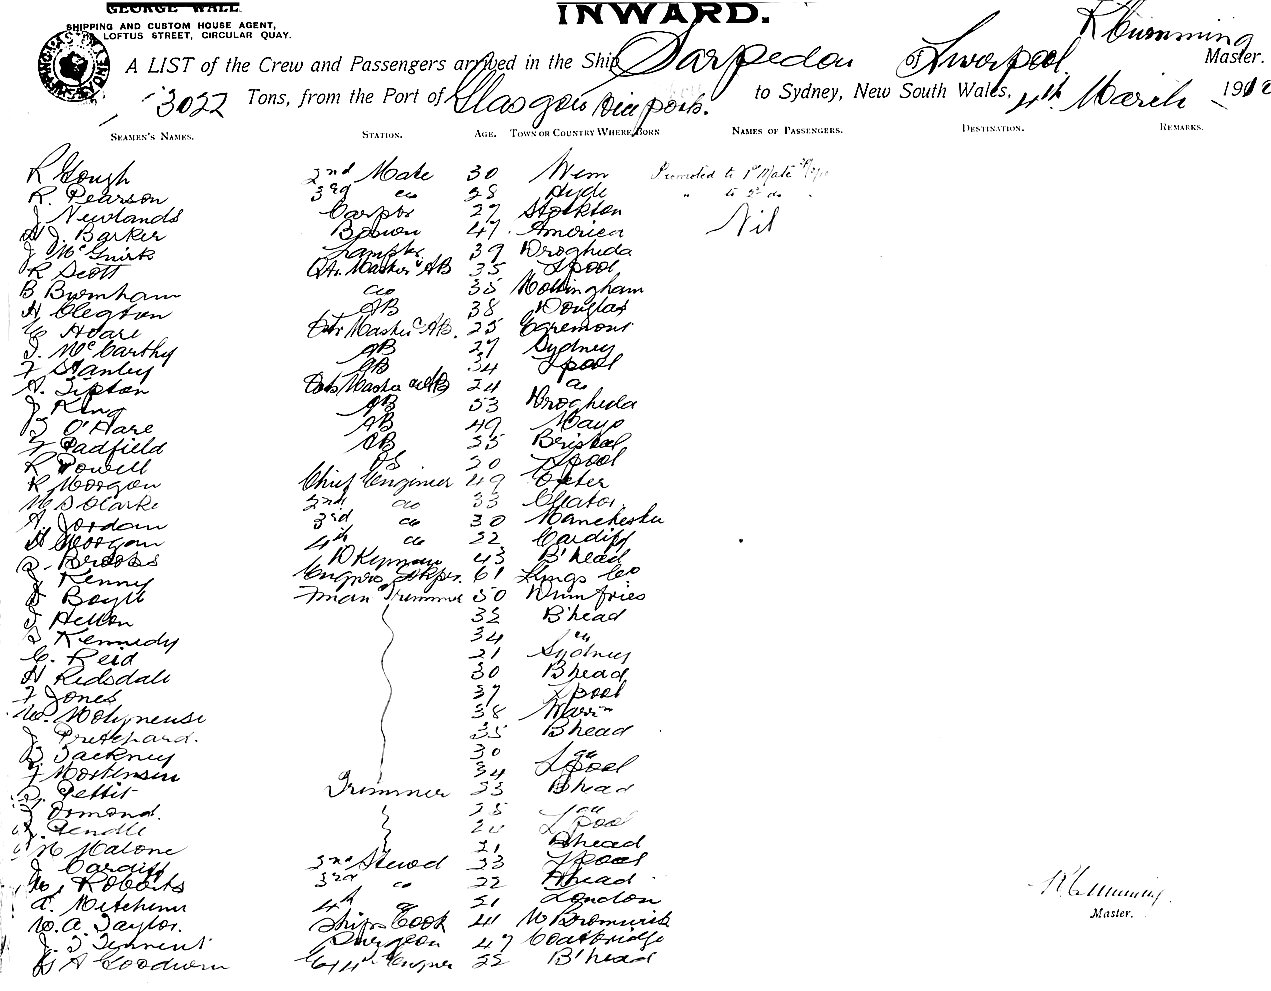 GEORGE WALL.
INWARD.
SHIPPING AND CUSTOM HOUSE AGENT,
LOFTUS STREET, CIRCULAR QUAY.
R Cumming
Master.
A LIST of the Crew and Passengers arrived in the Ship Sarpedon of Liverpool
3022 Tons, from the Port of Glasgow via ports. to Sydney, New South Wales, 4th March 1912
SEAMEN'S NAMES. STATION. AGE. TOWN OR COUNTRY WHERE BORN NAMES OF PASSENGERS. DESTINATION. REMARKS.
R Gough 2nd Mate 30 Wem Promoted to 1st Mate
R. Pearson 3rd do 28 Hyde " to 2nd do
J Newlands Carptr 27 Stockton Nil
H J. Barker Bosun 47 America
J McGuirk Lamptr 39 Drogheda
R Scott Qtr. Master & AB 35 Lpool
B Burnham do 38 Nottingham
H Clegton AB 38 Douglas
C Hoare Qtr Master & AB. 25 Egremont
J. McCarthy AB 27 Sydney
F Stanley AB 34 Lpool
A. Tipton Qtr Master & AB 24 do
J King AB 53 Drogheda
J O'Hare AB 49 Mayo
F Padfield AB 35 Bristol
R Powell OS 20 Lpool
R Morgan Chief Engineer 49 Exeter
W S Clarke 2nd do 33 Cleator
A. Jordan 3rd do 30 Manchester
H Morgan 4th do 22 Cardiff
Brooks Dkyman 43 B'head
J Kenny Engnrs Stkpr. 61 Kings Co
J Boyle Fman Trimmer 50 Dumfries
J Hellon 32 B'head
Kennedy 34 do
C. Reid 21 Sydney
H Ridsdale 30 Bhead
F Jones 37 Lpool
W. Molyneux 38
J Pritchard. 35 Bhead
Tackney 30 do
F Mortensen 34 Lpool
Pettit Trimmer 23 Bhead
J Ormond. 25 do
Lpool
W Malone 21 Bhead
J Cardiff 2nd Steward 33 Lpool
W. Roberts 3rd do 22 Bhead
A. Mitchener 4th do 21 London
W. A. Taylor. Ships Cook 41 W Bromwich
J. T Tennent Surgeon 47 Coatbridge
A Goodwin 22 B'head
R Cumming
Master.